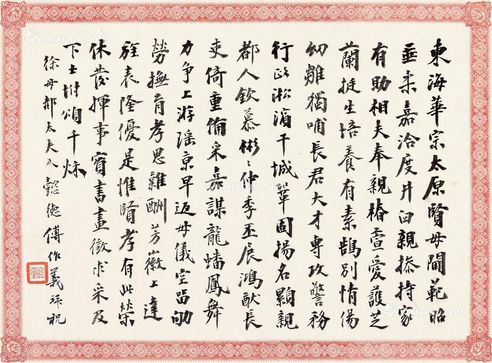 東海華宗太原賢母閫範昭
垂柔嘉洽度井臼親操持家
有助相夫奉親椿萱愛護芝
蘭挺生培養有素鵠別情傷
幼雛獨哺長君大才專攻警務
行政淞濱干城鞏固揚名顯親
都人欽慕彬彬仲季丕辰鴻猷長
吏倚重備采嘉謀龍蟠鳳舞
力爭上游瑤京早返母儀空留劬
勞撫育孝思難酬芳徽上達
旌表隆優是惟賢孝有此榮
休發揮事實書畫徵求采及
下士附頌千秋
徐母郝太夫人懿德 傅作義 拜祝